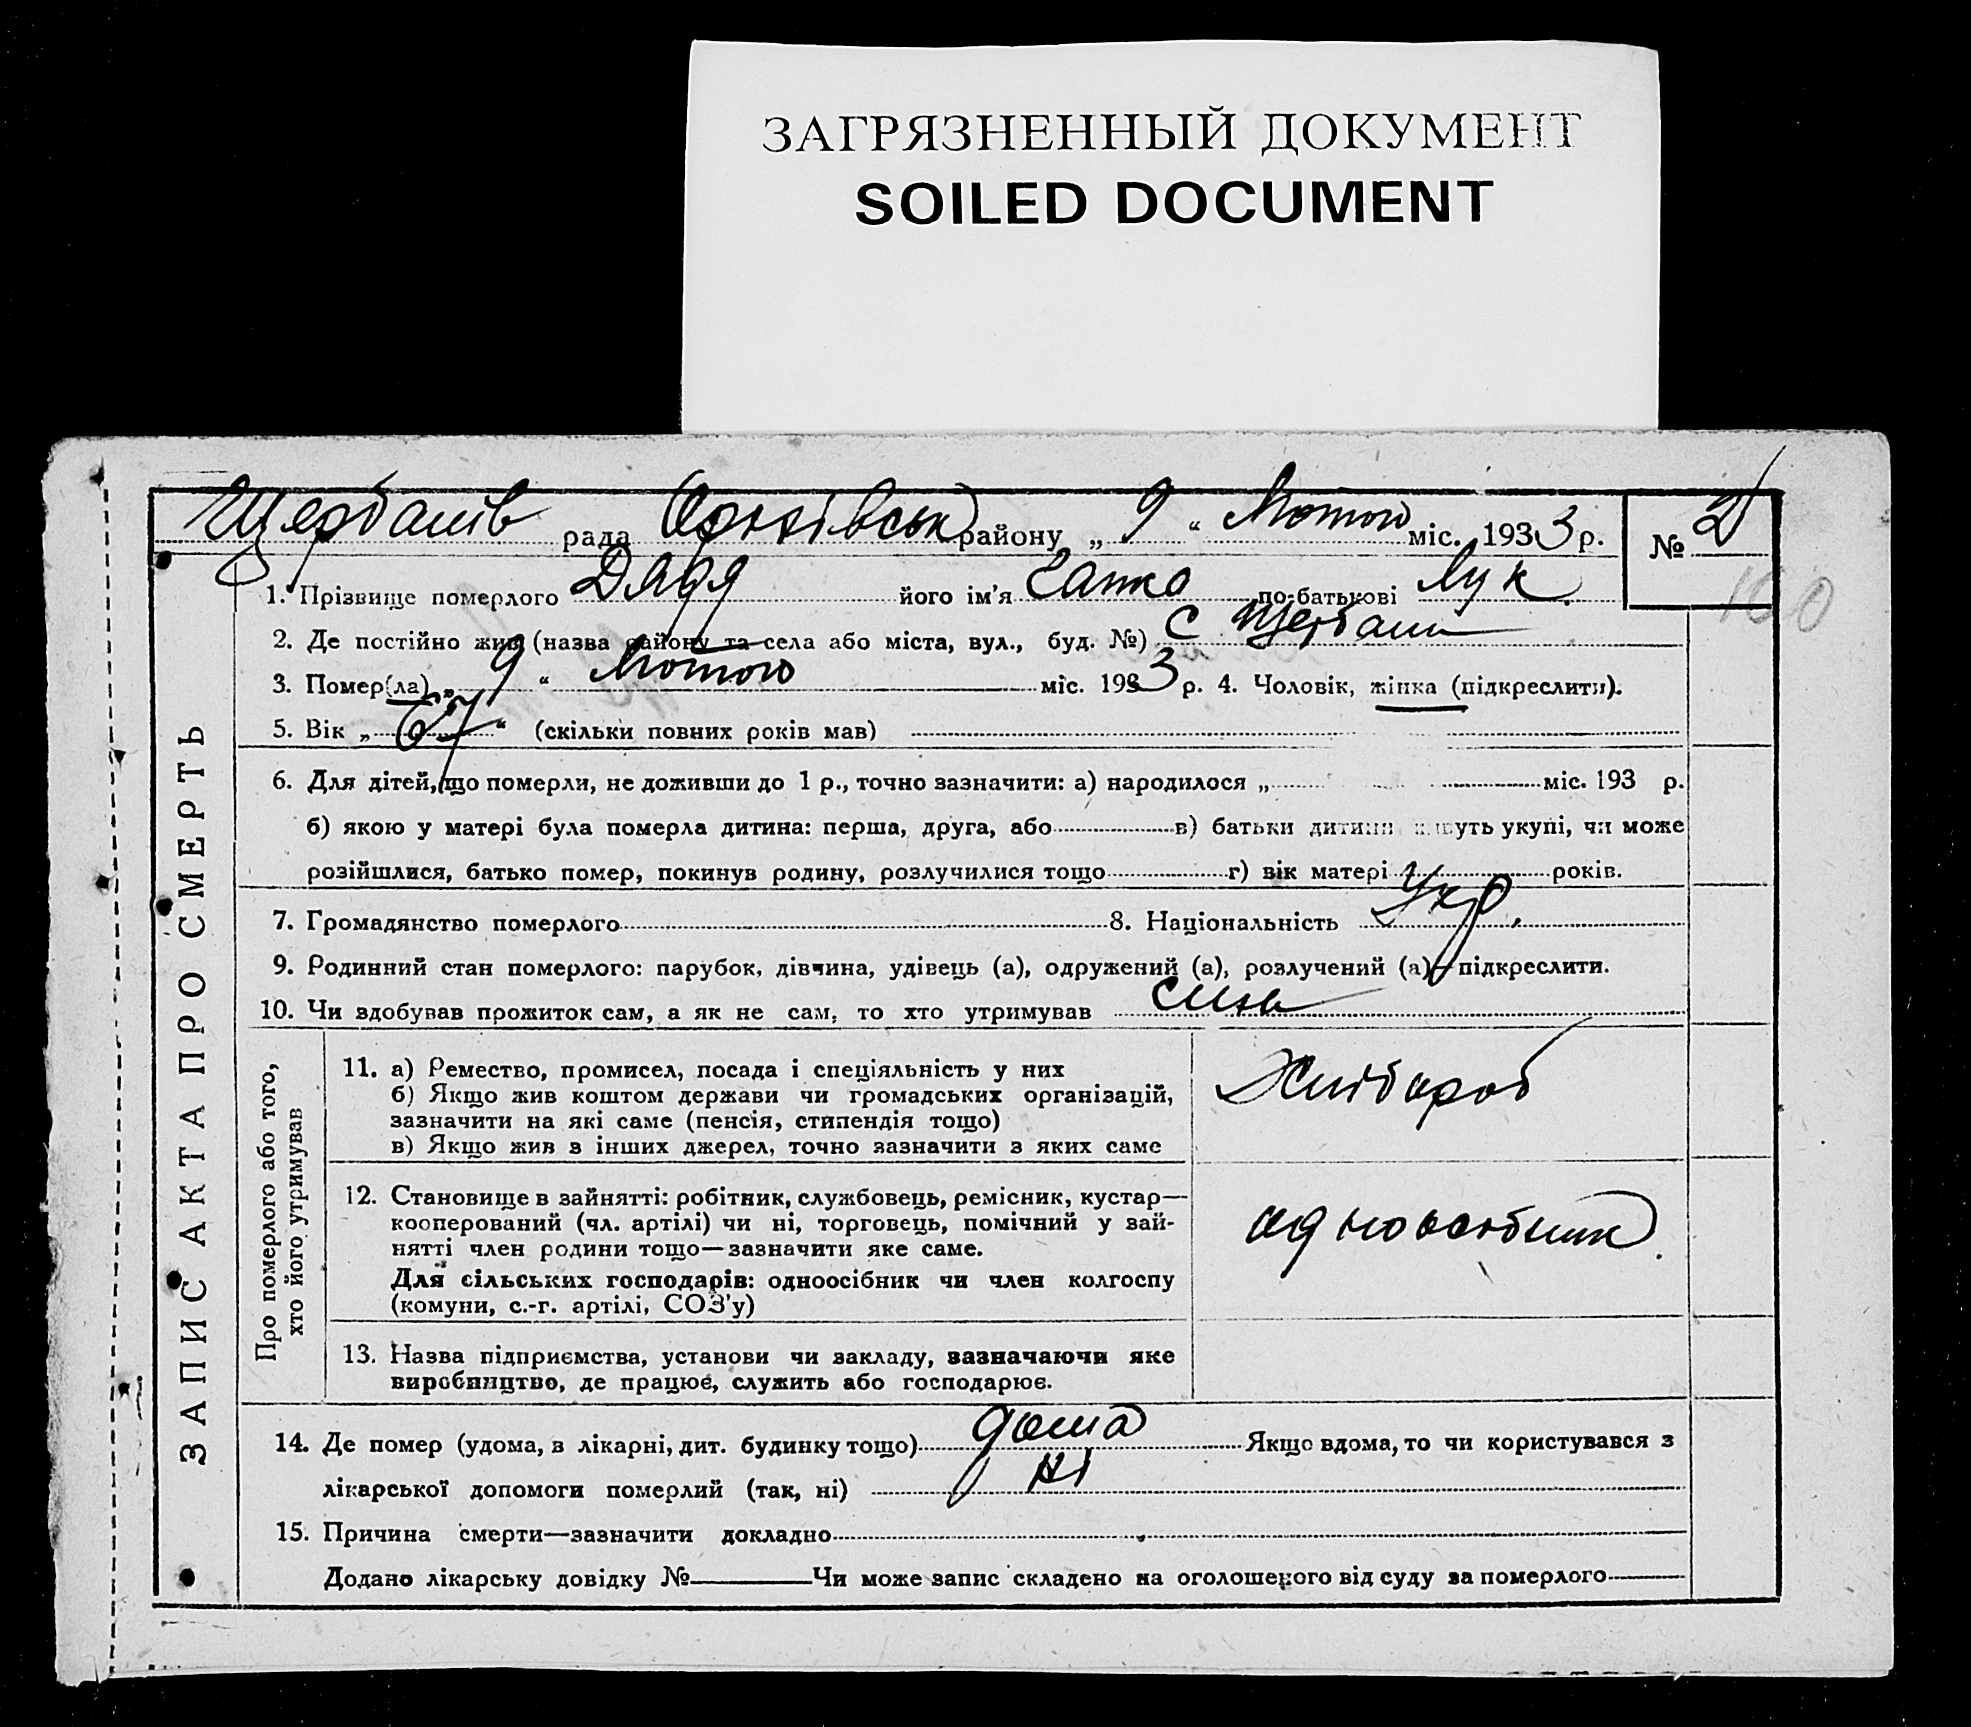 ЗАГРЯЗНЕННЫЙ ДОКУМЕНТ
SOILED DOCUMENT
Щербанів рада району „ 9 “ Лютого міс. 1933 р. № 2
100
1. Прізвище померлого його ім’я по-батькові Лук.
2. Де постійно жив (назва району та села або міста, вул., буд. №) с Щербани
3. Помер(ла) „ 9 “ Лютого міс. 1933 р. 4. Чоловік, жінка (підкреслити).
5. Вік „ 67 “ (скільки повних років мав)
6. Для дітей, що померли, не доживши до 1 р., точно зазначити: а) народилося „ міс. 193 р.
б) якою у матері була померла дитина: перша, друга, або в) батьки дитини живуть укупі, чи може
розійшлися, батько помер, покинув родину, розлучилися тощо г) вік матері років.
7. Громадянство померлого 8. Національність Укр.
9. Родинний стан померлого: парубок, дівчина, удівець (а), одружений (а), розлучений (а)—підкреслити.
10. Чи здобував прожиток сам, а як не сам, то хто утримував
ЗАПИС АКТА ПРО СМЕРТЬ
Про померлого або того,
хто його утримував
11. а) Ремество, промисел, посада і спеціяльність у них
б) Якщо жив коштом держави чи громадських організацій,
зазначити на які саме (пенсія, стипендія тощо)
в) Якщо жив з інших джерел, точно зазначити з яких саме
Хлібороб
12. Становище в зайнятті: робітник, службовець, ремісник, кустар—
кооперований (чл. артілі) чи ні, торговець, помічний у зай-
нятті член родини тощо—зазначити яке саме.
Для сільських господарів: одноосібник чи член колгоспу
(комуни, с.-г. артілі, СОЗ’у)
одноосібник.
13. Назва підприємства, установи чи закладу, зазначаючи яке
виробництво, де працює, служить або господарює.
14. Де помер (удома, в лікарні, дит. будинку тощо) дома Якщо вдома, то чи користувався з
лікарської допомоги померлий (так, ні) ні
15. Причина смерти—зазначити докладно
Додано лікарську довідку № Чи може запис складено на оголошеного від суду за померлого